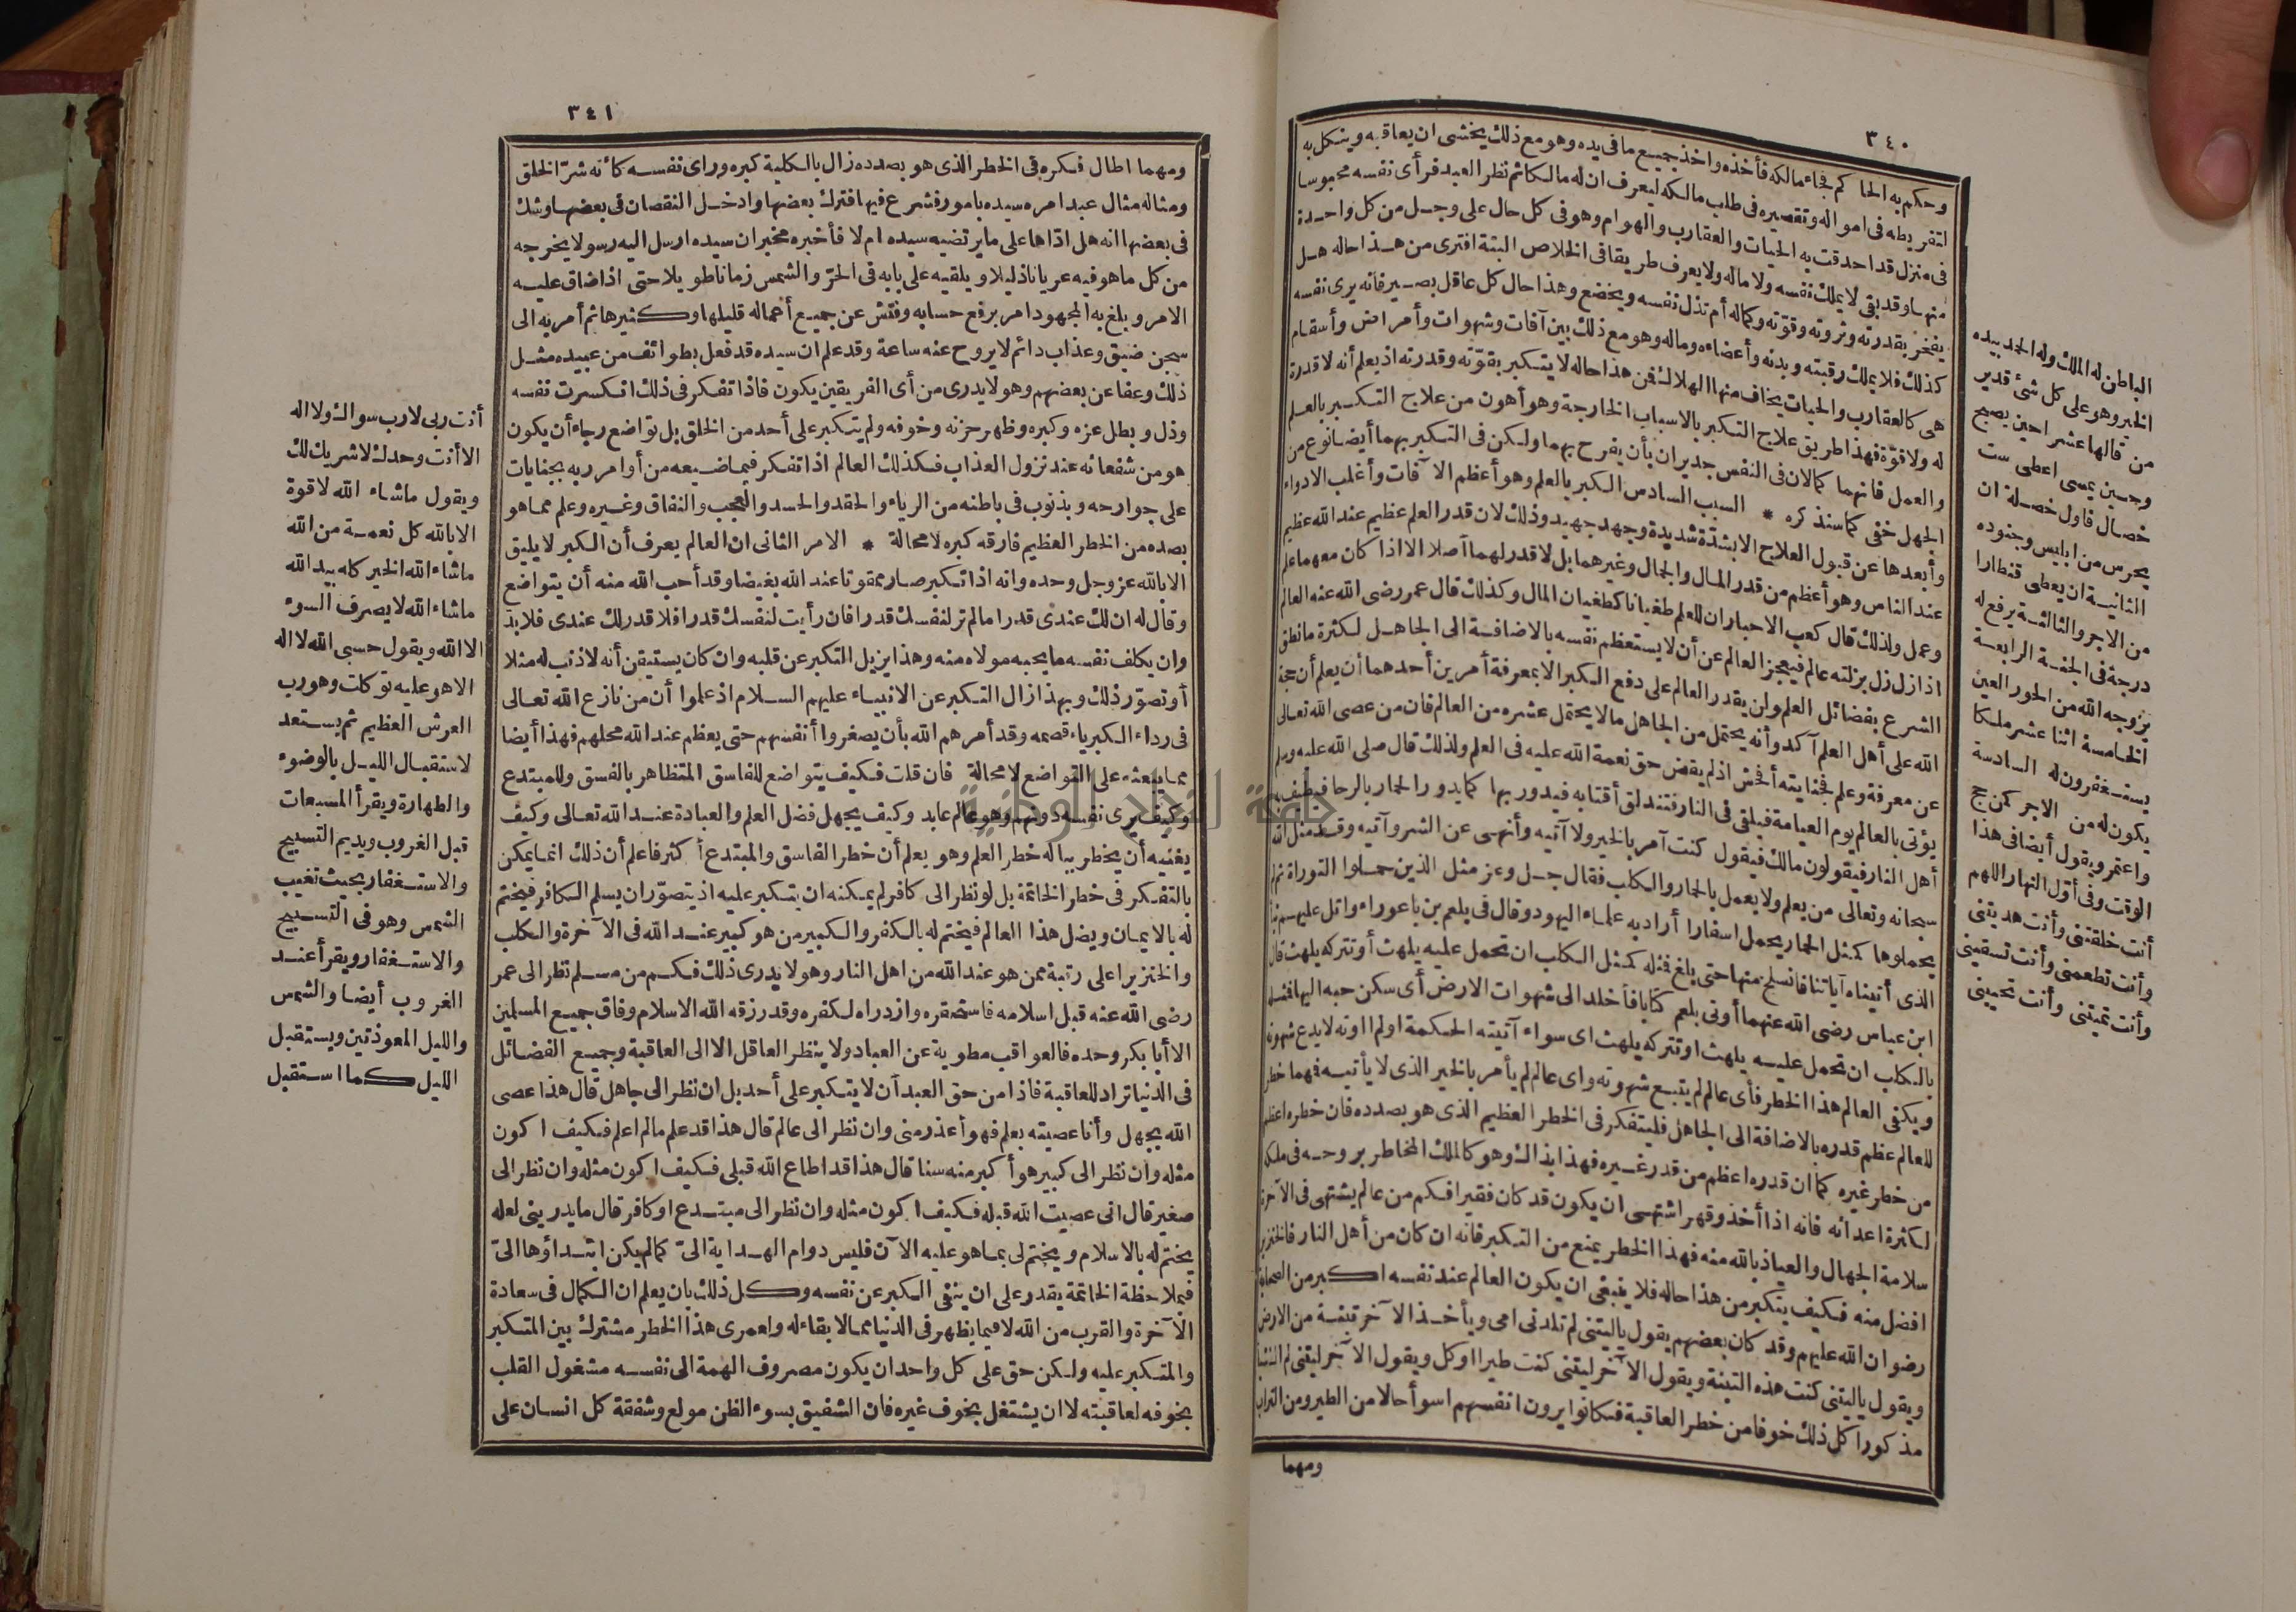 ٣٤٠
وحكم به الحاكم فجاء مالكه فأخذه واخذ جميع ما فى يده وهو مع ذلك يخشى ان يعاقبه وينكل به
لتفريطه فى امواله وتقصيره فى طلب مالكه ليعرف ان له مالكا ثم نظر العبد فرأى نفسه محبوسا
فى منزل قد احدقت به الحيات والعقارب والهوام وهو فى كل حال على وجل من كل واحدة
منها وقد بقى لا يملك نفسه ولا ماله ولا يعرف طريقا فى الخلاص البتة افترى من هذا حاله هل
يفخر بقدرته وثروته وقوّته وكماله أم تذل نفسه ويخضع وهذا حال كل عاقل بصير فانه يرى نفسه
كذلك فلا يملك رقبته وبدنه وأعضاءه وماله وهو مع ذلك بين آفات وشهوات وأمراض وأسقام
هى كالعقارب والحيات يخاف منها الهلاك فمن هذا حاله لا يتكبر بقوّته وقدرته اذ يعلم أنه لا قدرة
له ولا قوّة فهذا طريق علاج التكبر بالاسباب الخارجة وهو أهون من علاج التكبر بالعلم
والعمل فانهما كمالان فى النفس جديران بأن يفرح بهما ولكن فى التكبر بهما أيضا نوع من
الجهل خفى كما سنذكره * السبب السادس الكبر بالعلم وهو أعظم الآفات وأغلب الادواء
وأبعدها عن قبول العلاج الا بشدّة شديدة وجهد جهيد وذلك لان قدر العلم عظيم عند الله عظيم
عند الناس وهو أعظم من قدر المال والجمال وغيرهما بل لا قدر لهما أصلا الا اذا كان معهما علم
وعمل ولذلك قال كعب الاحبار ان للعلم طغيانا كطغيان المال وكذلك قال عمر رضى الله عنه العالم
اذا زل زل بزلته عالم فيعجز العالم عن أن لا يستعظم نفسه بالاضافة الى الجاهل لكثرة ما نطق
الشرع بفضائل العلم ولن يقدر العالم على دفع الكبر الا بمعرفة أمرين أحدهما أن يعلم أن حجة
الله على أهل العلم آكد وأنه يحتمل من الجاهل ما لا يحتمل عشره من العالم فان من عصى الله تعالى
عن معرفة وعلم فجنايته أفحش اذ لم يقض حق نعمة الله عليه فى العلم ولذلك قال صلى الله عليه وسلم
يؤتى بالعالم يوم القيامة فيلقى فى النار فتندلق أقتابه فيدور بها كما يدور الحمار بالرحا فيطيف به
أهل النار فيقولون مالك فيقول كنت آمر بالخير ولا آتيه وأنهى عن الشر وآتيه وقد مثل الله
سبحانه وتعالى من يعلم ولا يعمل بالحمار والكلب فقال جل وعز مثل الذين حملوا التوراة ثم لم
يحملوها كمثل الحمار يحمل اسفارا أراد به علماء اليهود وقال فى بلعم بن باعوراء واتل عليهم نبأ
الذى آتيناه آياتنا فانسلخ منها حتى بلغ فمثله كمثل الكلب ان تحمل عليه يلهث أو تتركه يلهث قال
ابن عباس رضى الله عنهما أوتى بلعم كتابا فأخلد الى شهوات الارض أى سكن حبه اليها فمثله
بالكلب ان تحمل عليه يلهث او تتركه يلهث اى سواء آتيته الحكمة او لم اوته لا يدع شهوته
ويكفى العالم هذا الخطر فأى عالم لم يتبع شهوته واى عالم لم يأمر بالخير الذى لا يأتيه فهما خطر
للعالم عظم قدره بالاضافة الى الجاهل فليتفكر فى الخطر العظيم الذى هو بصدده فان خطره اعظم
من خطر غيره كما ان قدره اعظم من قدر غيره فهذا بذاك وهو كالملك المخاطر بروحه فى ملكه
لكثرة اعدائه فانه اذا أخذ وقهر اشتهى ان يكون قد كان فقيرا فكم من عالم يشتهى فى الآخرة
سلامة الجهال والعياذ بالله منه فهذا الخطر يمنع من التكبر فانه ان كان من أهل النار فالخنزير
افضل منه فكيف يتكبر من هذا حاله فلا ينبغى ان يكون العالم عند نفسه اكبر من الصحابة
رضوان الله عليهم وقد كان بعضهم يقول ياليتنى لم تلدنى امى ويأخذ الآخر تبنة من الارض
ويقول ياليتنى كنت هذه التبنة ويقول الآخر ليتنى كنت طيرا اوكل ويقول الآخر ليتنى لم اك شيأ
مذكورا كل ذلك خوفا من خطر العاقبة فكانوا يرون انفسهم اسوأ حالا من الطير ومن التراب
ومهما
الباطن له الملك وله الحمد بيده
الخير وهو على كل شئ قدير
من قالها عشرا حين يصبح
وحين يمسى اعطى ست
خصال فاول خصلة ان
يحرس من ابليس وجنوده
الثانية ان يعطى قنطارا
من الاجر والثالثة يرفع له
درجة فى الجنة الرابعة
يزوجه الله من الحور العين
الخامسة اثنا عشر ملكا
يستغفرون له السادسة
يكون له من الاجر كمن حج
واعتمر ويقول أيضا فى هذا
الوقت وفى أوّل النهار اللهم
أنت خلقتنى وأنت هديتنى
وأنت تطعمنى وأنت تسقينى
وأنت تميتنى وأنت تحيينى
٣٤١
ومهما اطال فكره فى الخطر الذى هو بصدده زال بالكلية كبره وراى نفسه كأنه شرّ الخلق
ومثاله مثال عبد امره سيده بامور فشرع فيها فترك بعضها وادخل النقصان فى بعضها وشك
فى بعضها انه هل اداها على ما يرتضيه سيده ام لا فأخبره مخبر ان سيده ارسل اليه رسولا يخرجه
من كل ما هو فيه عريانا ذليلا ويلقيه على بابه فى الحرّ والشمس زمانا طويلا حتى اذا ضاق عليه
الامر وبلغ به المجهود امر برفع حسابه وفتش عن جميع أعماله قليلها وكثيرها ثم أمر به الى
سجن ضيق وعذاب دائم لا يروح عنه ساعة وقد علم ان سيده قد فعل بطوائف من عبيده مثل
ذلك وعفا عن بعضهم وهو لا يدرى من أى الفريقين يكون فاذا تفكر فى ذلك انكسرت نفسه
وذل وبطل عزه وكبره وظهر حزنه وخوفه ولم يتكبر على أحد من الخلق بل تواضع رجاء أن يكون
هو من شفعائه عند نزول العذاب فكذلك العالم اذا تفكر فيما ضيعه من أوامر ربه بجنايات
على جوارحه وبذنوب فى باطنه من الرياء والحقد والحسد والعجب والنفاق وغيره وعلم مما هو
بصدده من الخطر العظيم فارقه كبره لا محالة * الامر الثانى ان العالم يعرف أن الكبر لا يليق
الا بالله عز وجل وحده وانه اذا تكبر صار ممقوتا عند الله بغيضا وقد أحب الله منه أن يتواضع
وقال له ان لك عندى قدرا ما لم تر لنفسك قدرا فان رأيت لنفسك قدرا فلا قدر لك عندى فلا بدّ
وان يكلف نفسه ما يحبه مولاه منه وهذا يزيل التكبر عن قلبه وان كان يستيقن أنه لا ذنب له مثلا
أو تصوّر ذلك وبهذا زال التكبر عن الانبياء عليهم السلام اذ علموا أن من نازع الله تعالى
فى رداء الكبرياء قصمه وقد أمرهم الله بأن يصغروا أنفسهم حتى يعظم عند الله محلهم فهذا أيضا
مما يبعثه على التواضع لا محالة فان قلت فكيف يتواضع للفاسق المتظاهر بالفسق وللمبتدع
وكيف يرى نفسه دونهم وهو عالم عابد وكيف يجهل فضل العلم والعبادة عند الله تعالى وكيف
يغنيه أن يخطر بباله خطر العلم وهو يعلم أن خطر الفاسق والمبتدع أكثر فاعلم أن ذلك انما يمكن
بالتفكر فى خطر الخاتمة بل لو نظر الى كافر لم يمكنه ان يتكبر عليه اذ يتصوّر ان يسلم الكافر فيختم
له بالايمان ويضل هذا العالم فيختم له بالكفر والكبير من هو كبير عند الله فى الآخرة والكلب
والخنزير اعلى رتبة ممن هو عند الله من اهل النار وهو لا يدرى ذلك فكم من مسلم نظر الى عمر
رضى الله عنه قبل اسلامه فاستحقره وازدراه لكفره وقد رزقه الله الاسلام وفاق جميع المسلمين
الا أبا بكر وحده فالعواقب مطوية عن العباد ولا ينظر العاقل الا الى العاقبة وجميع الفضائل
فى الدنيا تراد للعاقبة فاذا من حق العبد أن لا يتكبر على أحد بل ان نظر الى جاهل قال هذا عصى
الله بجهل وأنا عصيته بعلم فهو أعذر منى وان نظر الى عالم قال هذا قد علم ما لم اعلم فكيف اكون
مثله وان نظر الى كبير هو أكبر منه سنا قال هذا قد اطاع الله قبلى فكيف اكون مثله وان نظر الى
صغير قال انى عصيت الله قبله فكيف اكون مثله وان نظر الى مبتدع او كافر قال ما يدرينى لعله
يختم له بالاسلام ويختم لى بما هو عليه الآن فليس دوام الهداية الىّ كما لم يكن ابتداؤها الىّ
فبملاحظة الخاتمة يقدر على ان ينفى الكبر عن نفسه وكل ذلك بان يعلم ان الكمال فى سعادة
الآخرة والقرب من الله لا فيما يظهر فى الدنيا مما لا بقاء له ولعمرى هذا الخطر مشترك بين المتكبر
والمتكبر عليه ولكن حق على كل واحد ان يكون مصروف الهمة الى نفسه مشغول القلب
بخوفه لعاقبته لا ان يشتغل بخوف غيره فان الشفيق بسوء الظن مولع وشفقة كل انسان على
أنت ربى لا رب سواك ولا اله
الا أنت وحدك لا شريك لك
ويقول ما شاء الله لا قوة
الا بالله كل نعمة من الله
ما شاء الله الخير كله بيد الله
ما شاء الله لا يصرف السوء
الا الله ويقول حسبى الله لا اله
الا هو عليه توكلت وهو رب
العرش العظيم ثم يستعد
لاستقبال الليل بالوضوء
والطهارة ويقرأ المسبعات
قبل الغروب ويديم التسبيح
والاستغفار بحيث تغيب
الشمس وهو فى التسبيح
والاستغفار ويقرأ عند
الغروب أيضا والشمس
والليل المعوذتين ويستقبل
الليل كما استقبل